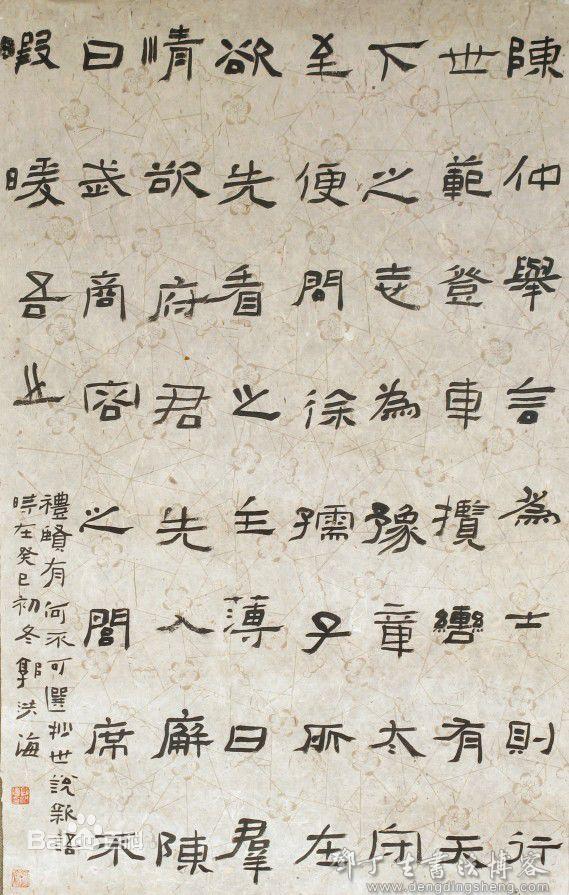 陳仲舉言為士則行
世範登車攬轡有天
下之志為豫章太守
至便問徐孺子所在
欲先看之主薄曰羣
情欲府君先入廨陳
曰武商容之閭席不
暇暖吾之
禮賢有何不可選抄世說新語
時在癸巳初冬郭洪海
Bai百科
鄧丁生書法博客
www.dengdingsheng.com